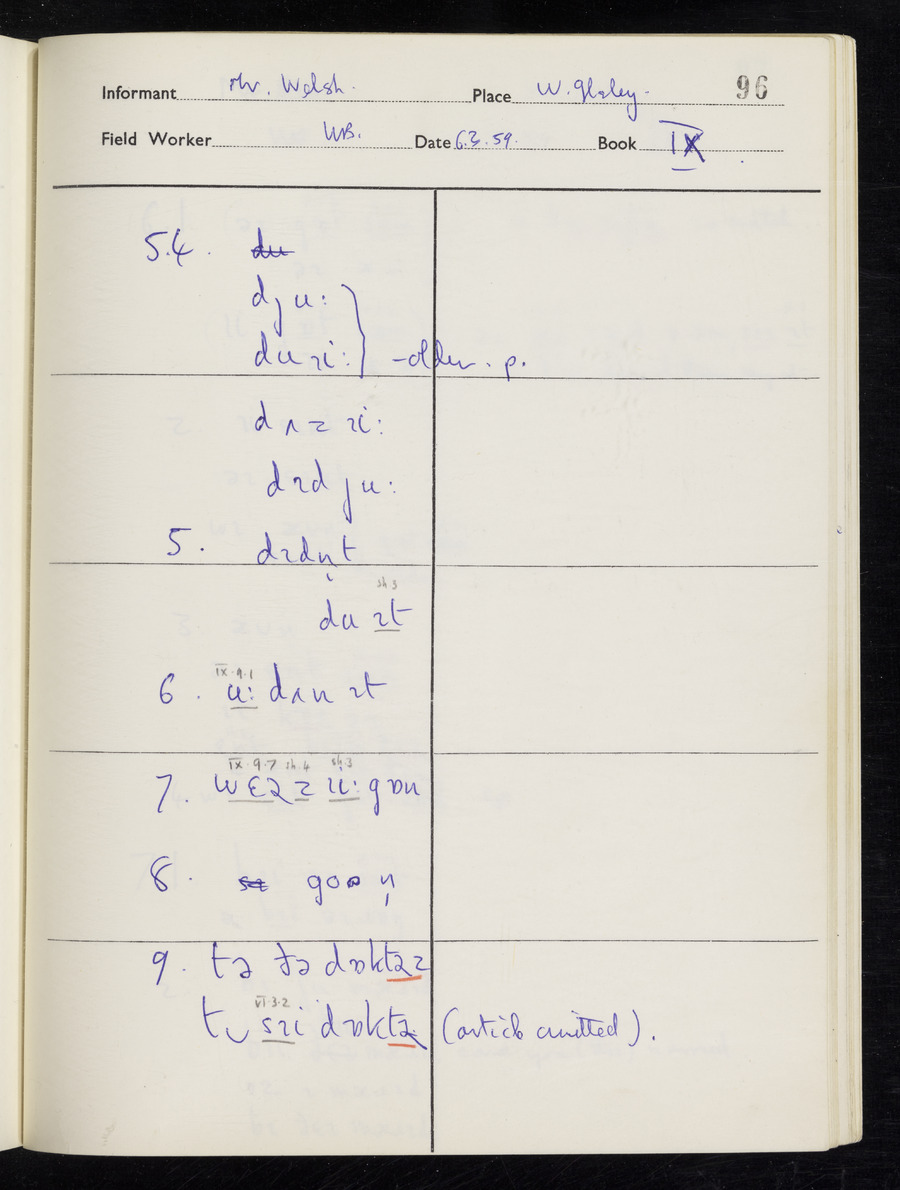 Informant Mr. Welsh. Place W. Ilsley. 96
Field Worker WB. Date 6.3.59. Book IX
5.4. du
dȷu:
duɹi: } – older. p.
dʌzɹi:
dɹdȷu:
5. dɹdn̩t
sh 3
duɹt
IX.9.1
6. u: dʌnɹt
IX.9.7 sh.4 sh.3
7. wɛɹzɹi: gɒn
8. gɒn̩
9. tə ðə dɒktəɹz
VI.3.2
tʊ sɹi dɒktəɹ (article omitted).